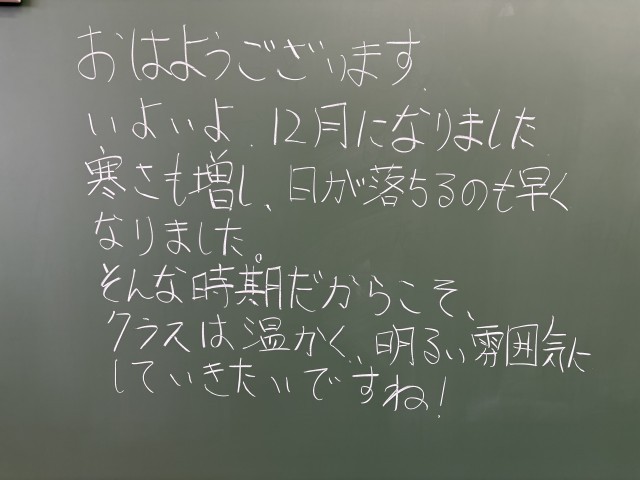 おはようございます.
いよいよ、12月になりました
寒さも増し、日が落ちるのも早く
なりました。
そんな時期だからこそ、
クラスは温かく、明るい雰囲気に
していきたいですね!